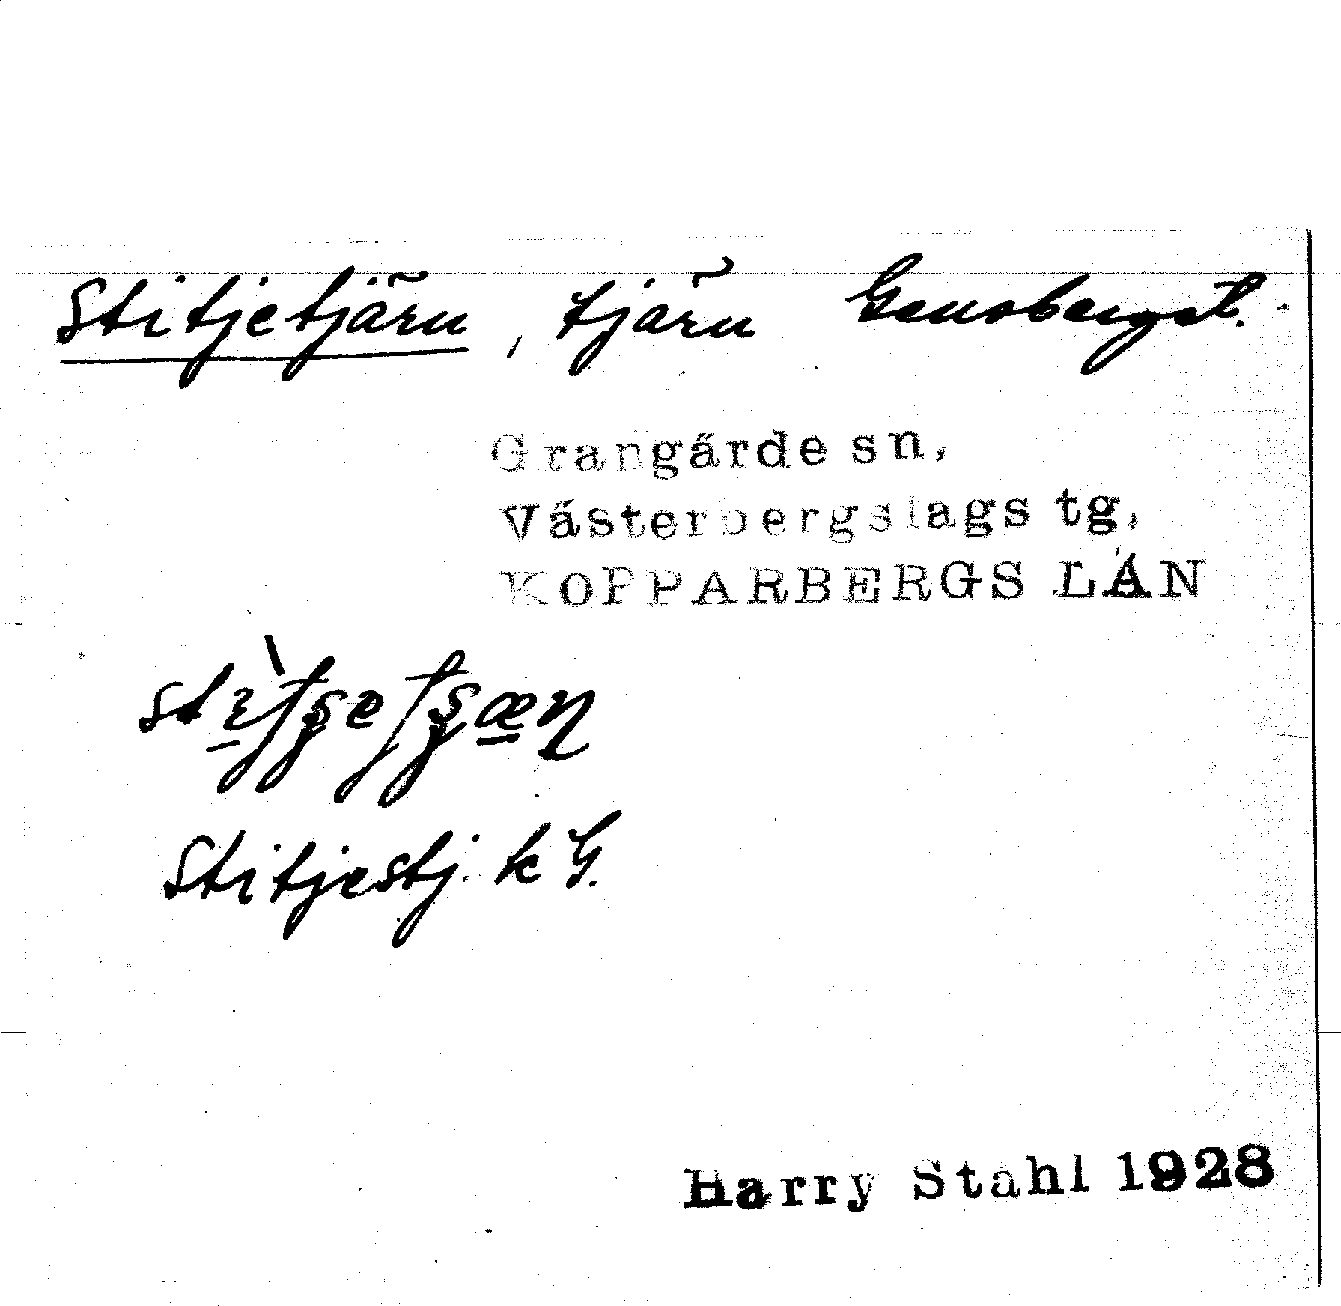 Stitjetjärn, tjärn Gensbergst.
Grangärde sn,
Västerbergslags tg,
KOPPARBERGS LÄN
Stitjestj. k G.
Harry Ståhl 1928